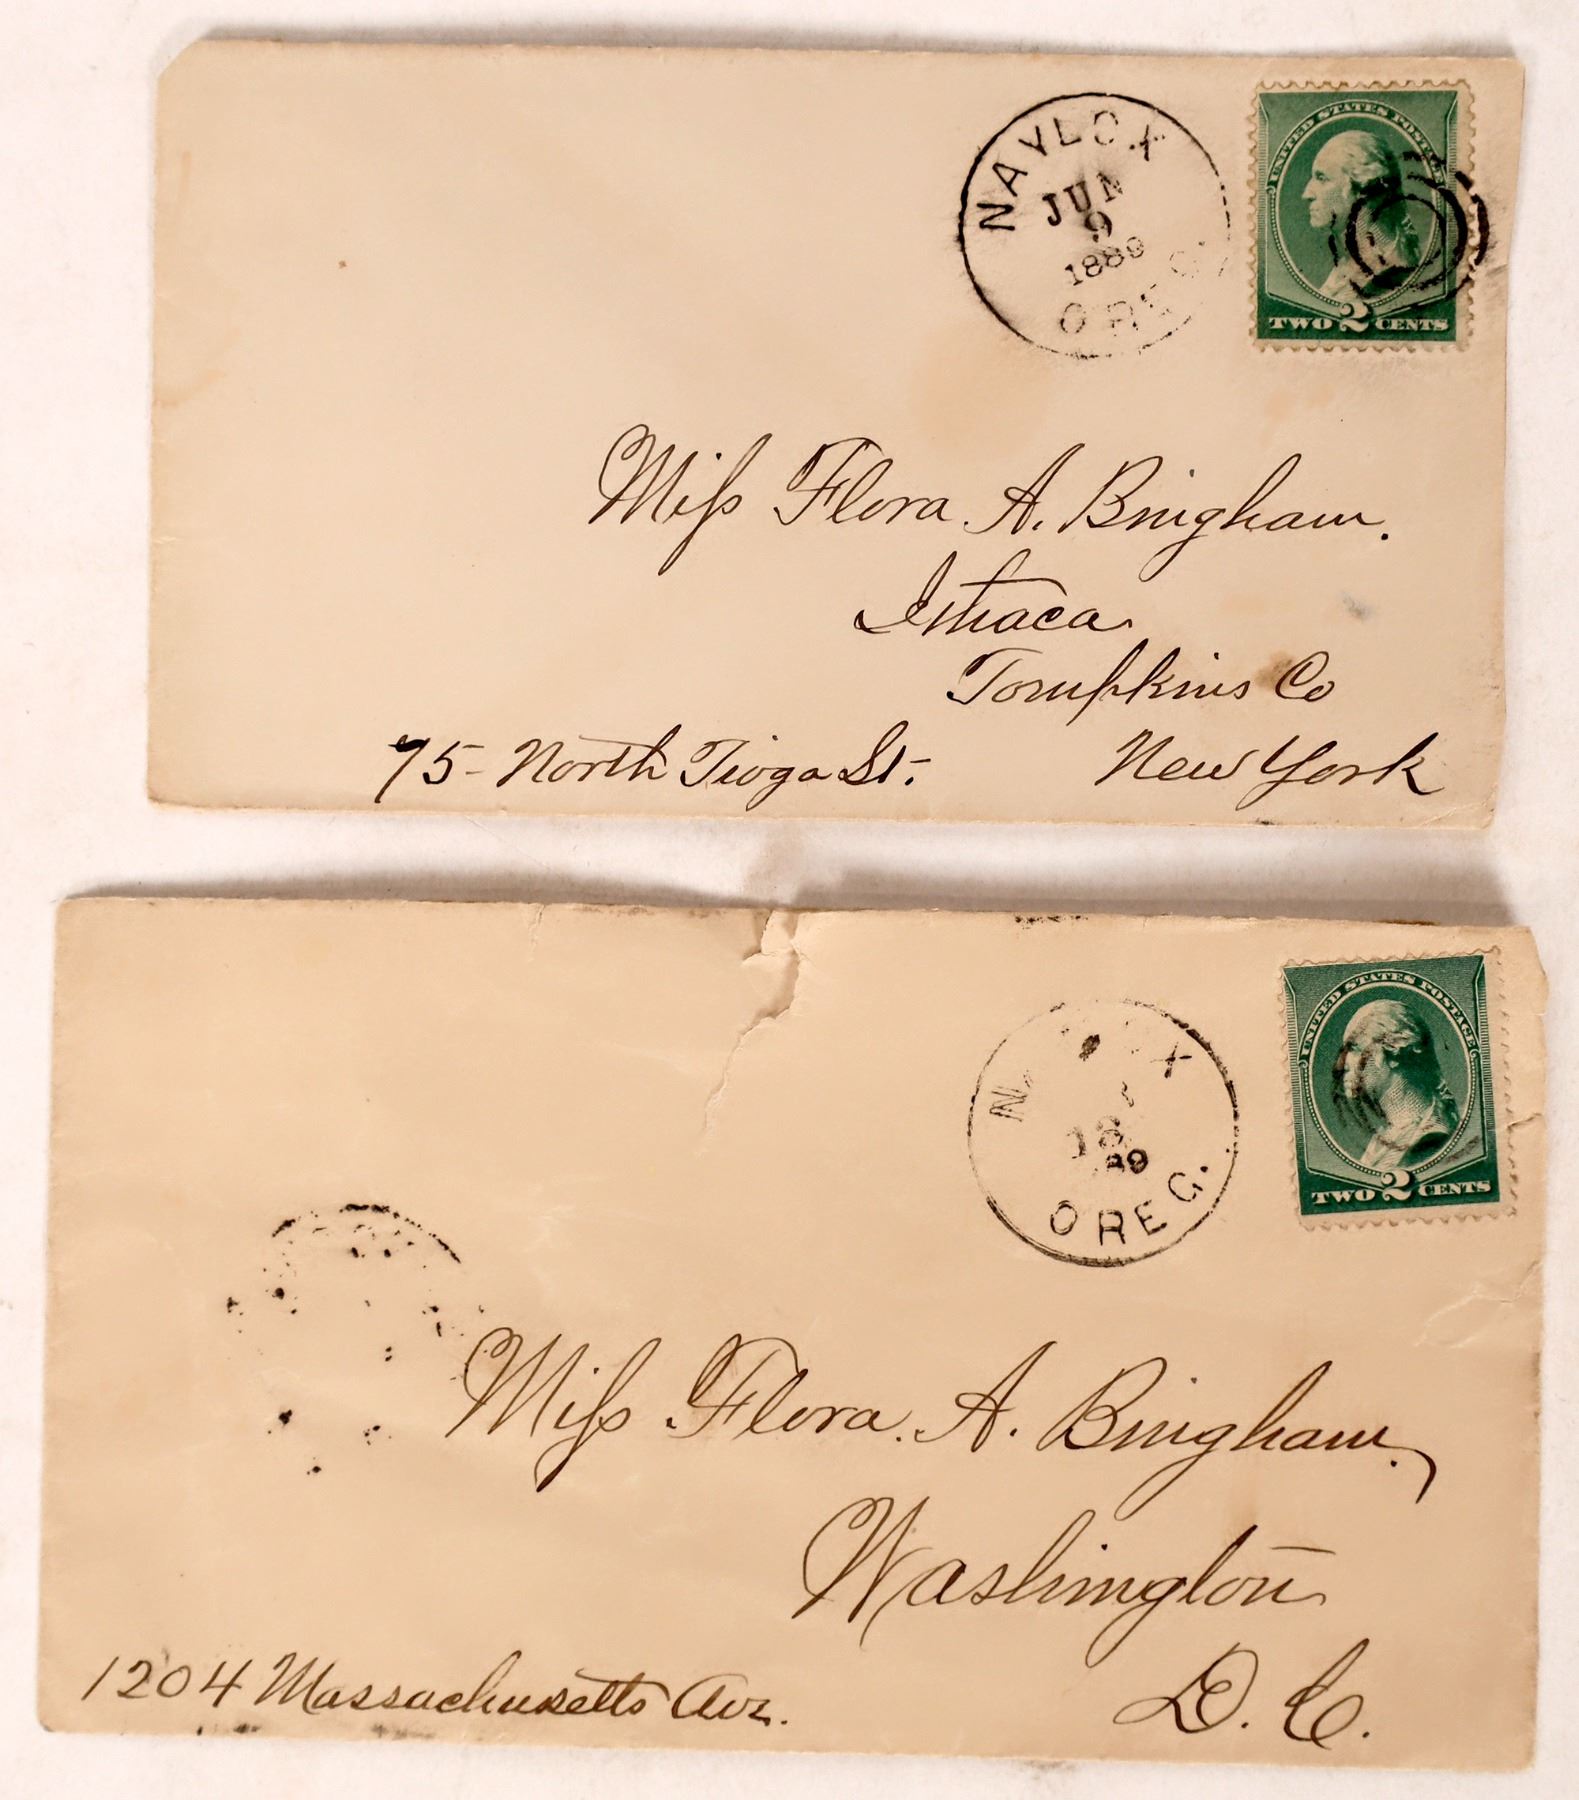 NAYLOX
JUN
9
1889
OREG.
UNITED STATES POSTAGE
TWO 2 CENTS
Miss Flora A. Bingham.
Ithaca
Tompkins Co
75- North Tioga St.
New York
OREG.
UNITED STATES POSTAGE
TWO 2 CENTS
Miss Flora. A. Bingham,
Washington
1204 Massachusetts Ave.
D. C.